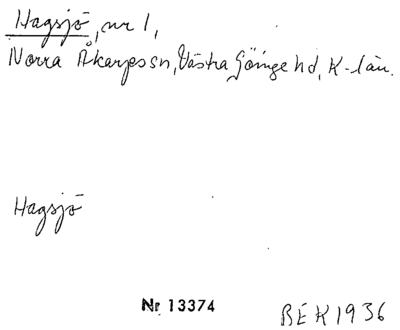 Hagsjö, nr 1,
Norra Åkarps sn, Västra Göinge hd, K-län.
Hagsjö
Nr 13374
BEK 1936